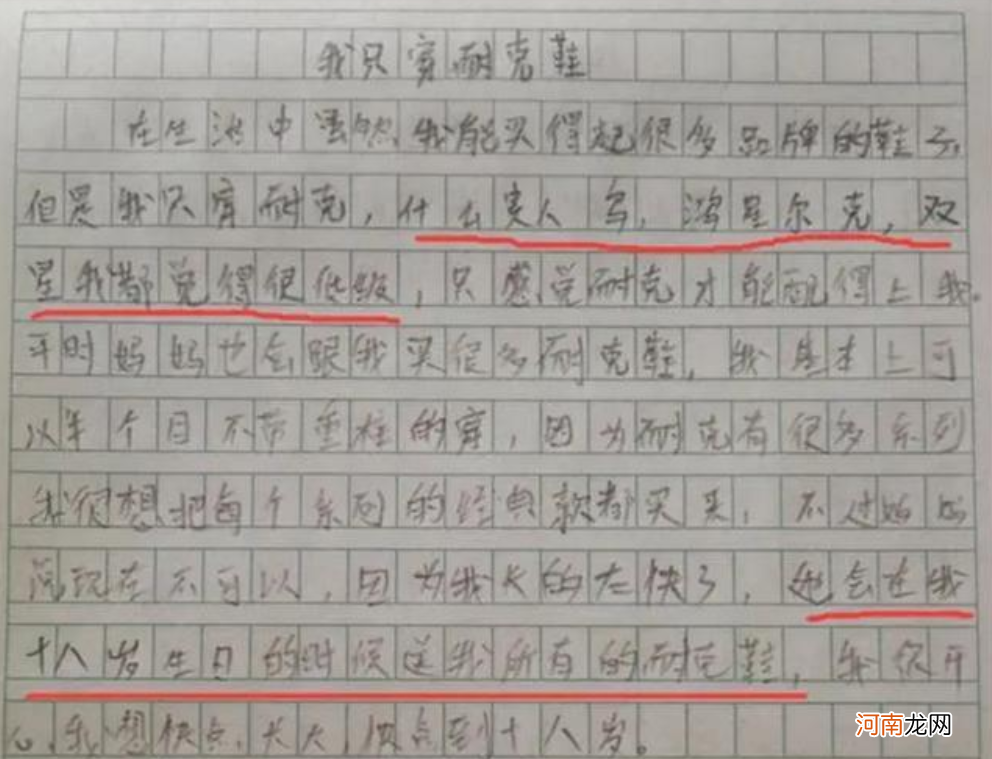 我只穿耐克鞋
在生活中虽然我能买得起很多品牌的鞋子,
但是我只穿耐克,什么贵人鸟,鸿星尔克,双
星我都觉得很低级,只感觉耐克才能配得上我。
平时妈妈也会跟我买很多耐克鞋,我基本上可
以半个月不带重样的穿,因为耐克有很多系列
我很想把每个系列的经典款都买来,不过妈妈
说现在不可以,因为我长的太快了,她会在我
十八岁生日的时候送我所有的耐克鞋,我很开
心,我想快点长大,快点到十八岁。
河南龙网